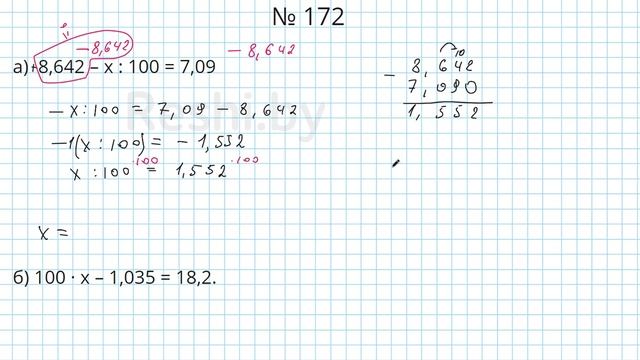 № 172
0
"
– 8,642
– 8,642
а)+8,642 – x : 100 = 7,09
– x : 100 = 7,09 – 8,642
–1(x : 100) = – 1,552
·100 ·100
x : 100 = 1,552
x =
б) 100 · x – 1,035 = 18,2.
10
8,642
–
7,090
1,552
Reshi.by